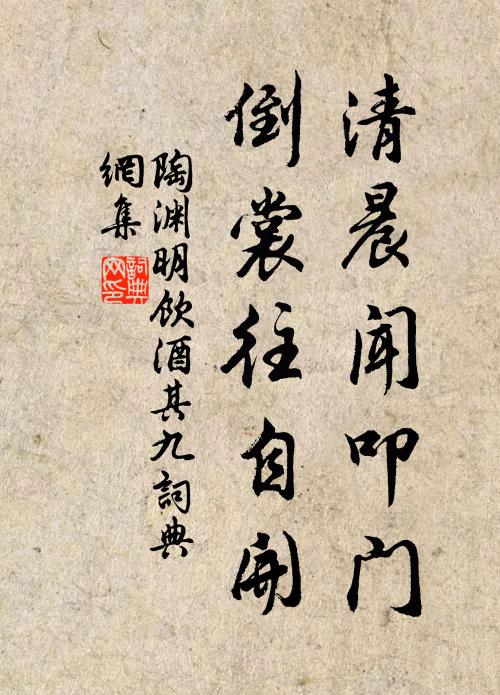 清晨闻叩门
倒裳往自开
陶渊明饮酒其九詞典
網集
詞典
网印